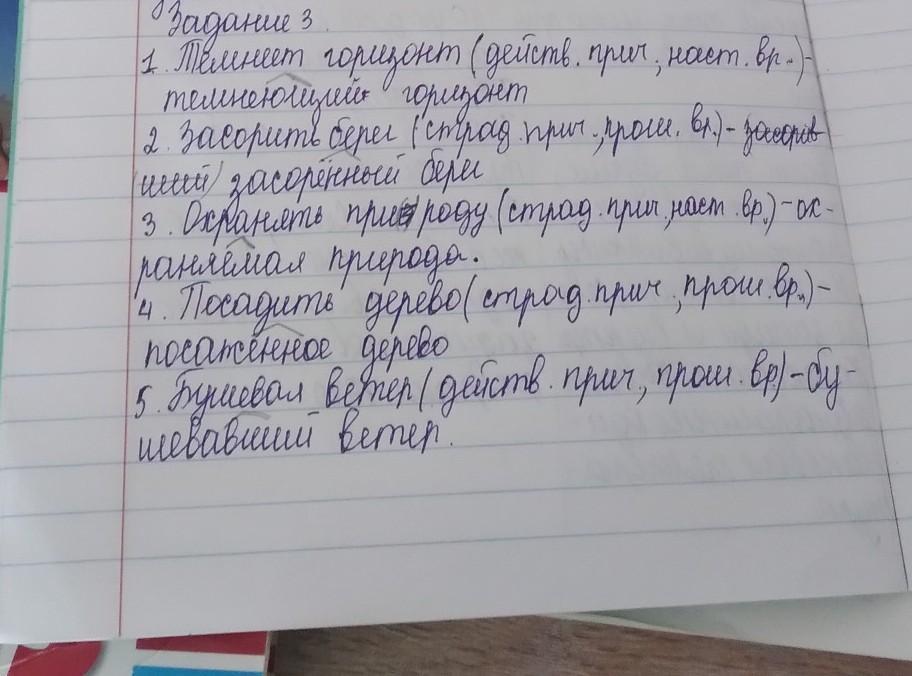 Задание 3.
1. Темнеет горизонт (действ. прич., наст. вр.) -
темнеющий горизонт
2. Засорить берег (страд. прич., прош. вр.) - засорив
ший) засорённый берег
3. Охранять природу (страд. прич., наст. вр.) - ох-
раняемая природа.
4. Посадить дерево (страд. прич., прош. вр.) -
посаженное дерево
5. Бушевал ветер (действ. прич., прош. вр.) - бу-
шевавший ветер.